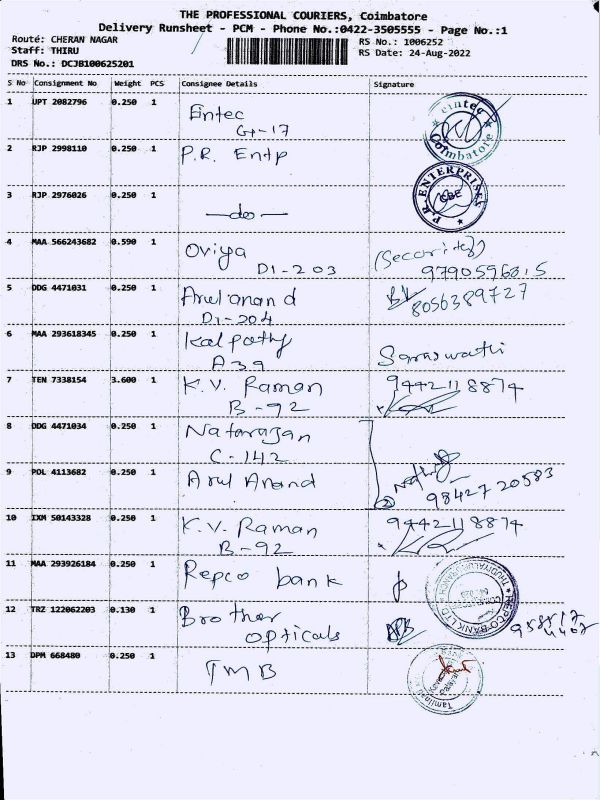 THE PROFESSIONAL COURIERS, Coimbatore
Delivery Runsheet - PCM - Phone No.:0422-3505555 - Page No.:1
Route: CHERAN NAGAR
RS No.: 1006252
Staff: THIRU
RS Date: 24-Aug-2022
DRS No.: DCJB100625201
S No Consignment No Weight PCS Consignee Details Signature
1 UPT 2082796 0.250 1 Eintec
G-17
eintec Coimbatore
2 RJP 2998110 0.250 1 P.R. Entp
3 RJP 2976026 0.250 1 —do—
P.R. ENTERPRISES CBE
4 MAA 566243682 0.590 1 Oviya (Security)
D1-203
5 DDG 4471031 0.250 1 Arul anand 8056389727
D1-204
6 MAA 293618345 0.250 1 Kalpathy Saraswathi
A39
7 TEN 7338154 3.600 1 K.V. Raman 9442118874
B-92
8 DDG 4471034 0.250 1 Natarajan
C-142
9 POL 4113682 0.250 1 Arul Anand 9842720583
10 IXM 50143328 0.250 1 K.V. Raman 9442118874
B-92
11 MAA 293926184 0.250 1 Repco bank
REPCO BANK LTD THUDIYALUR BRANCH
12 TRZ 122062203 0.130 1 Brother
opticals
13 DPM 668480 0.250 1 TMB